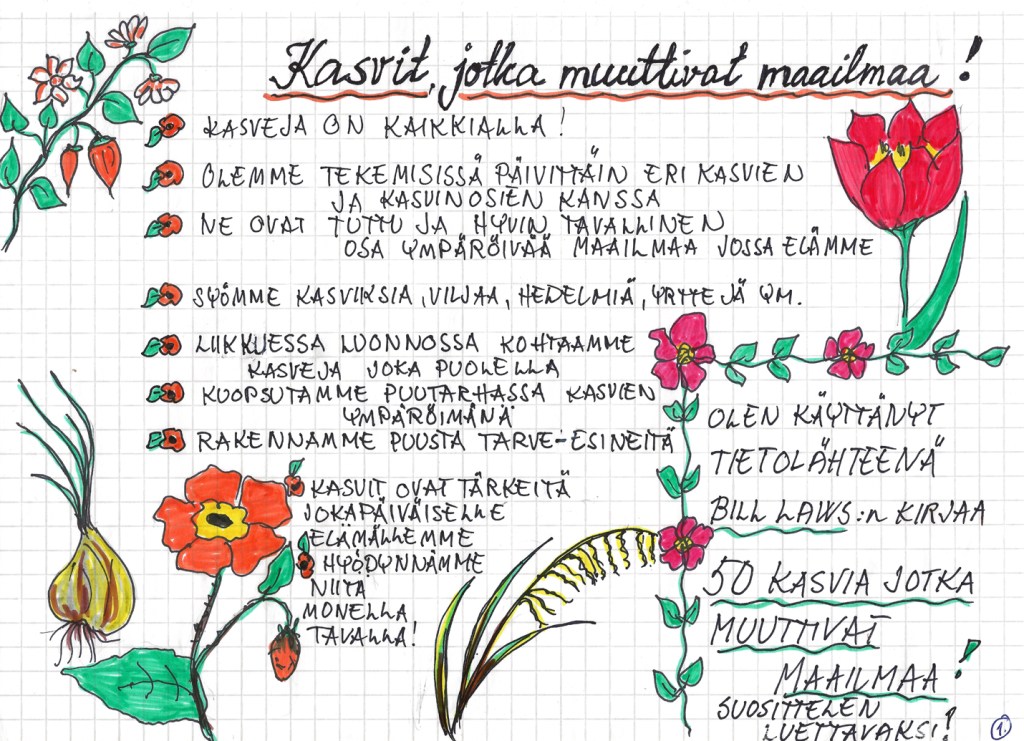 Kasvit, jotka muuttivat maailmaa!
KASVEJA ON KAIKKIALLA!
OLEMME TEKEMISISSÄ PÄIVITTÄIN ERI KASVIEN
JA KASVINOSIEN KANSSA
NE OVAT TUTTU JA HYVIN TAVALLINEN
OSA YMPÄRÖIVÄÄ MAAILMAA JOSSA ELÄMME
SYÖMME KASVIKSIA, VILJAA, HEDELMIÄ, YRTTEJÄ YM.
LIIKKUESSA LUONNOSSA KOHTAAMME
KASVEJA JOKA PUOLELLA
KUOPSUTAMME PUUTARHASSA KASVIEN
YMPÄRÖIMÄNÄ
RAKENNAMME PUUSTA TARVE-ESINEITÄ
KASVIT OVAT TÄRKEITÄ
JOKAPÄIVÄISELLE
ELÄMÄLLEMME
HYÖDYNNÄMME
NIITÄ
MONELLA
TAVALLA!
OLEN KÄYTTÄNYT
TIETOLÄHTEENÄ
BILL LAWS:n KIRJAA
50 KASVIA JOTKA
MUUTTIVAT
MAAILMAA!
SUOSITTELEN
LUETTAVAKSI!
1.